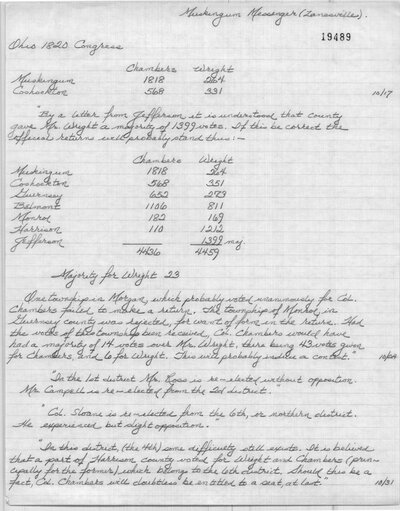 Muskingum Messenger (Zanesville).
19489
Ohio 1820 Congress
Chambers Wright
Muskingum 1818 264
Coshockton 568 331 10/17
"By a letter from Jefferson it is understood that county
gave Mr. Wright a majority of 1399 votes. If this be correct the
official returns will probably stand thus:—
Chambers Wright
Muskingum 1818 264
Coshockton 568 331
Guernsey 652 273
Belmont 1106 811
Monroe 182 169
Harrison 110 1212
Jefferson 1399 maj
4436 4459
Majority for Wright 23
One township in Morgan, which probably voted unanimously for Col.
Chambers failed to make a return. The township of Monroe, in
Guernsey county was rejected, for want of form in the return. Had
the votes of this township been received, Col. Chambers would have
had a majority of 14 votes over Mr. Wright, there being 43 votes given
for Chambers, and 6 for Wright. This will probably induce a contest." 10/24
"In the 1st district Mr. Ross is re-elected without opposition.
Mr. Campbell is re-elected from the 2d district.
"Col. Sloane is re-elected from the 6th, or northern district.
He experienced but slight opposition."
"In this district, (the 4th) some difficulty still exists. It is believed
that a part of Harrison county voted for Wright and Chambers (prin-
cipally for the former) which belongs to the 6th district. Should this be a
fact, Col. Chambers will doubtless be entitled to a seat, at last." 10/31